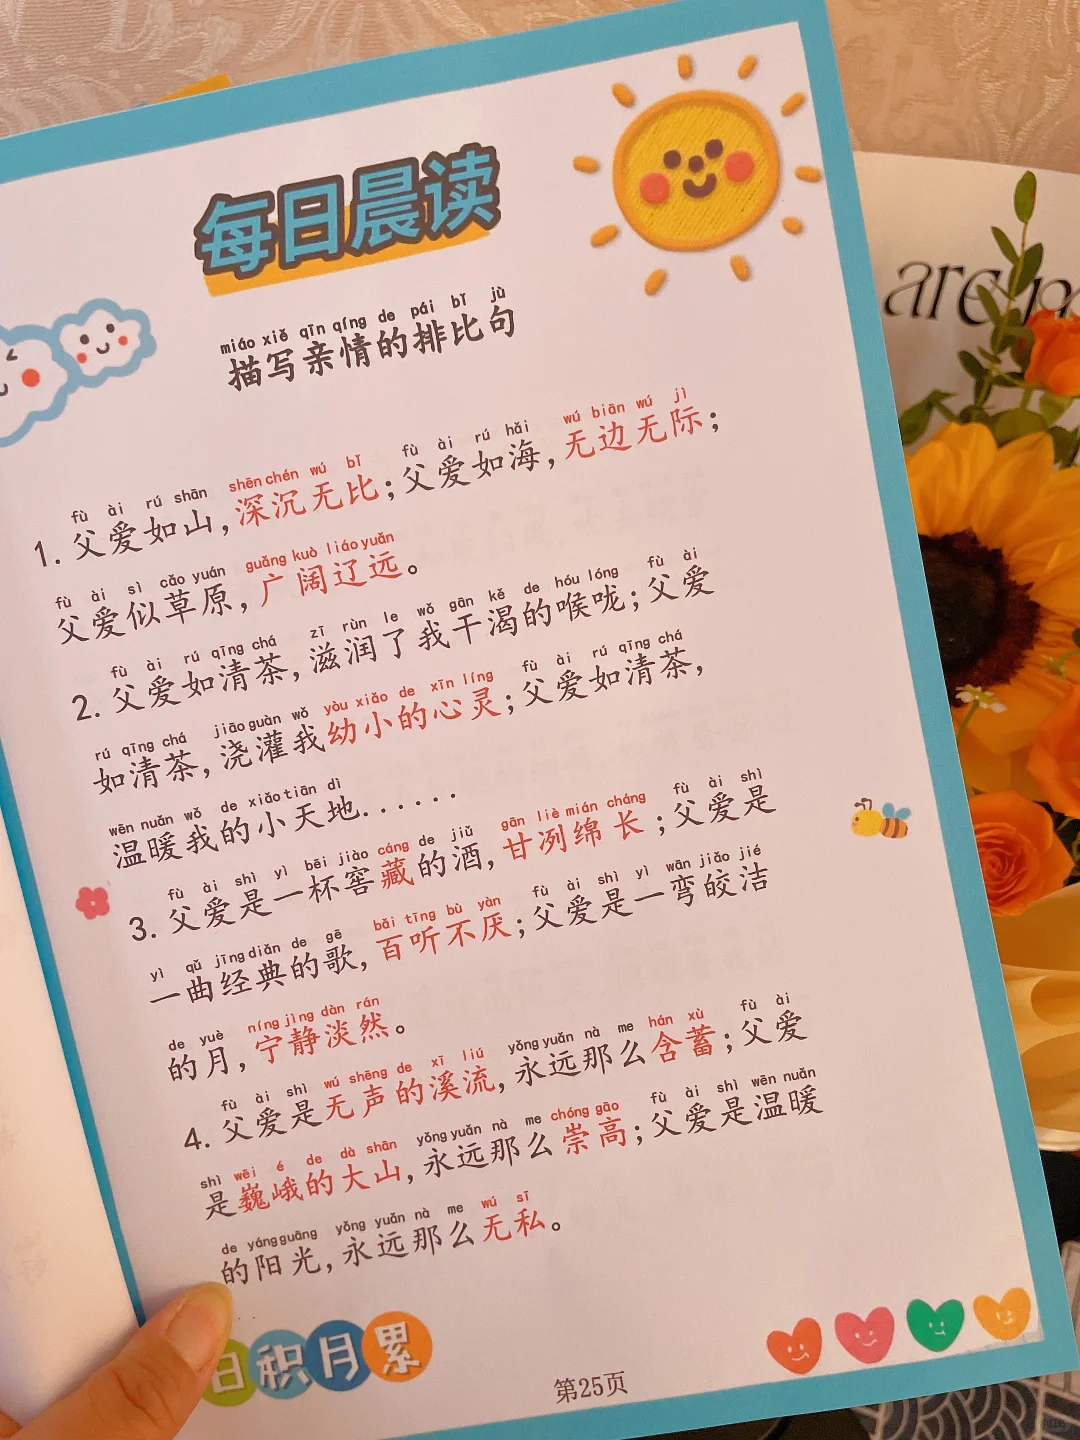 每日晨读
miáo xiě qīn qíng de pái bǐ jù
描写亲情的排比句
fù ài rú shān shēn chén wú bǐ fù ài rú hǎi wú biān wú jì
1. 父爱如山,深沉无比;父爱如海,无边无际;
fù ài sì cǎo yuán guǎng kuò liáo yuǎn
父爱似草原,广阔辽远。
fù ài rú qīng chá zī rùn le wǒ gān kě de hóu lóng fù ài
2. 父爱如清茶,滋润了我干渴的喉咙;父爱
rú qīng chá jiāo guàn wǒ yòu xiǎo de xīn líng fù ài rú qīng chá
如清茶,浇灌我幼小的心灵;父爱如清茶,
wēn nuǎn wǒ de xiǎo tiān dì
温暖我的小天地......
fù ài shì yì bēi jiào cáng de jiǔ gān liè mián cháng fù ài shì
3. 父爱是一杯窖藏的酒,甘冽绵长;父爱是
yì qǔ jīng diǎn de gē bǎi tīng bù yàn fù ài shì yì wān jiǎo jié
一曲经典的歌,百听不厌;父爱是一弯皎洁
de yuè níng jìng dàn rán
的月,宁静淡然。
fù ài shì wú shēng de xī liú yǒng yuǎn nà me hán xù fù ài
4. 父爱是无声的溪流,永远那么含蓄;父爱
shì wēi é de dà shān yǒng yuǎn nà me chóng gāo fù ài shì wēn nuǎn
是巍峨的大山,永远那么崇高;父爱是温暖
de yáng guāng yǒng yuǎn nà me wú sī
的阳光,永远那么无私。
日积月累
第25页
are